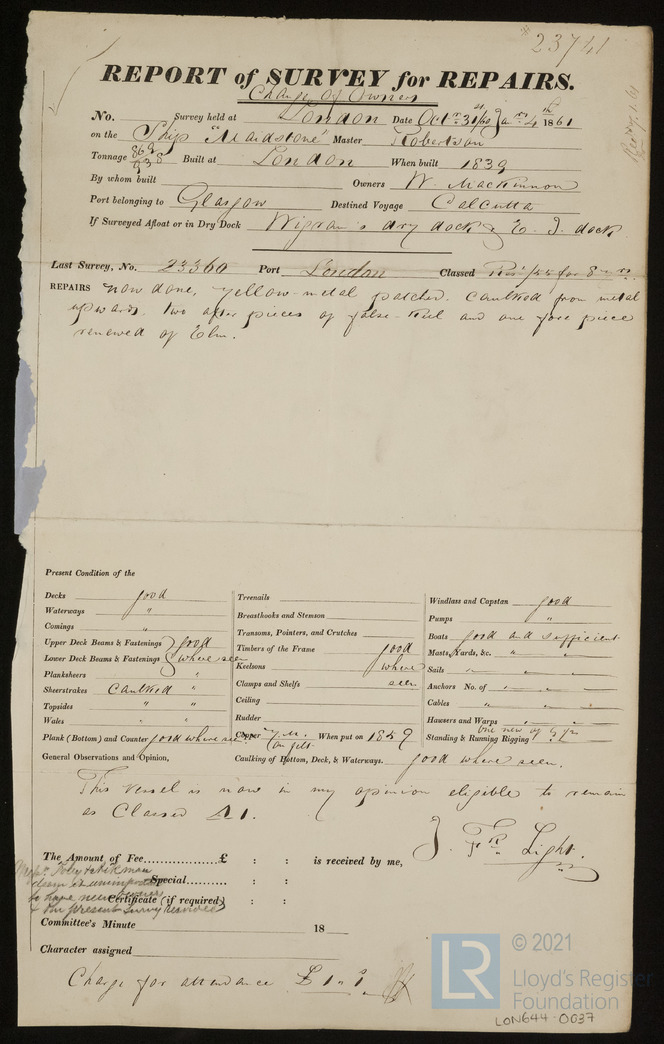 23741
REPORT of SURVEY for REPAIRS.
Change of Owners
No. Survey held at London Date Octr 31st/60 Jany 4th 1861
on the Ship "Maidstone" Master Robertson
Tonnage 869 938 Built at London When built 1839
By whom built Owners W. Mackinnon
Port belonging to Glasgow Destined Voyage Calcutta
If Surveyed Afloat or in Dry Dock Wigram's dry dock & E. I. dock
Last Survey, No. 23360 Port London Classed
REPAIRS now done, yellow-metal patched. Caulked from metal
upwards. two after pieces of false-keel and one fore piece
renewed of Elm.
Present Condition of the
Decks good
Waterways "
Comings "
Upper Deck Beams & Fastenings good
Lower Deck Beams & Fastenings where seen
Planksheers "
Sheerstrakes Caulked "
Topsides " "
Wales " "
Plank (Bottom) and Counter good where seen
Treenails
Breasthooks and Stemson
Transoms, Pointers, and Crutches
Timbers of the Frame good
Keelsons where
Clamps and Shelfs seen
Ceiling
Rudder
Copper Y.M. on felt When put on 1859
Windlass and Capstan good
Pumps "
Boats good and sufficient
Masts, Yards, &c. " " "
Sails " " "
Anchors No. of " " "
Cables " " "
Hawsers and Warps " "
Standing & Running Rigging " "
General Observations and Opinion,
Caulking of Bottom, Deck, & Waterways. good where seen.
This vessel is now in my opinion eligible to remain
as Classed A1.
J. Fk Light.
The Amount of Fee £ : : is received by me,
Special : :
Certificate (if required) : :
deem it
to have new
& the present Survey
Committee's Minute 18
Character assigned
Charge for attendance £1 " 1
LR
© 2021
Lloyd's Register
Foundation
LON644-0037